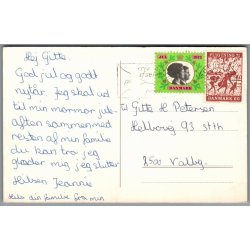 Hej Gitte.
God jul og godt
nytår. Jeg skal ud
til min mormor jule-
aften sammenmed
resten af min familie
du kan tro jeg
glæder mig jeg slutter
Hilsen Jeannie
Hils din familie fra min
JUL 1972
DANMARK
DANMARK 60
Til Gitte H Petersen
Helborgvej 93 st th
2500 Valby.